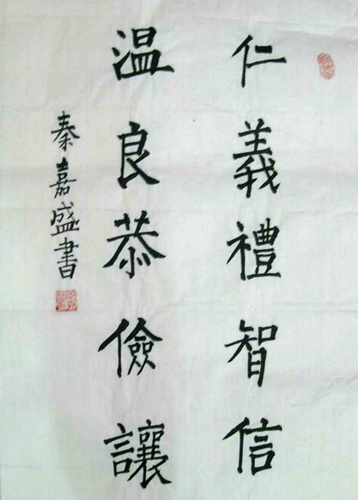 仁義禮智信
温良恭儉讓
秦嘉盛書